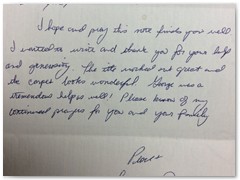 I hope and pray this note finds you well
I wanted to write and thank you for your help
and generosity. The             worked out great and
the carpet looks wonderful. George was a
tremendous help as well! Please know of my
continued prayers for you and your family
Peace